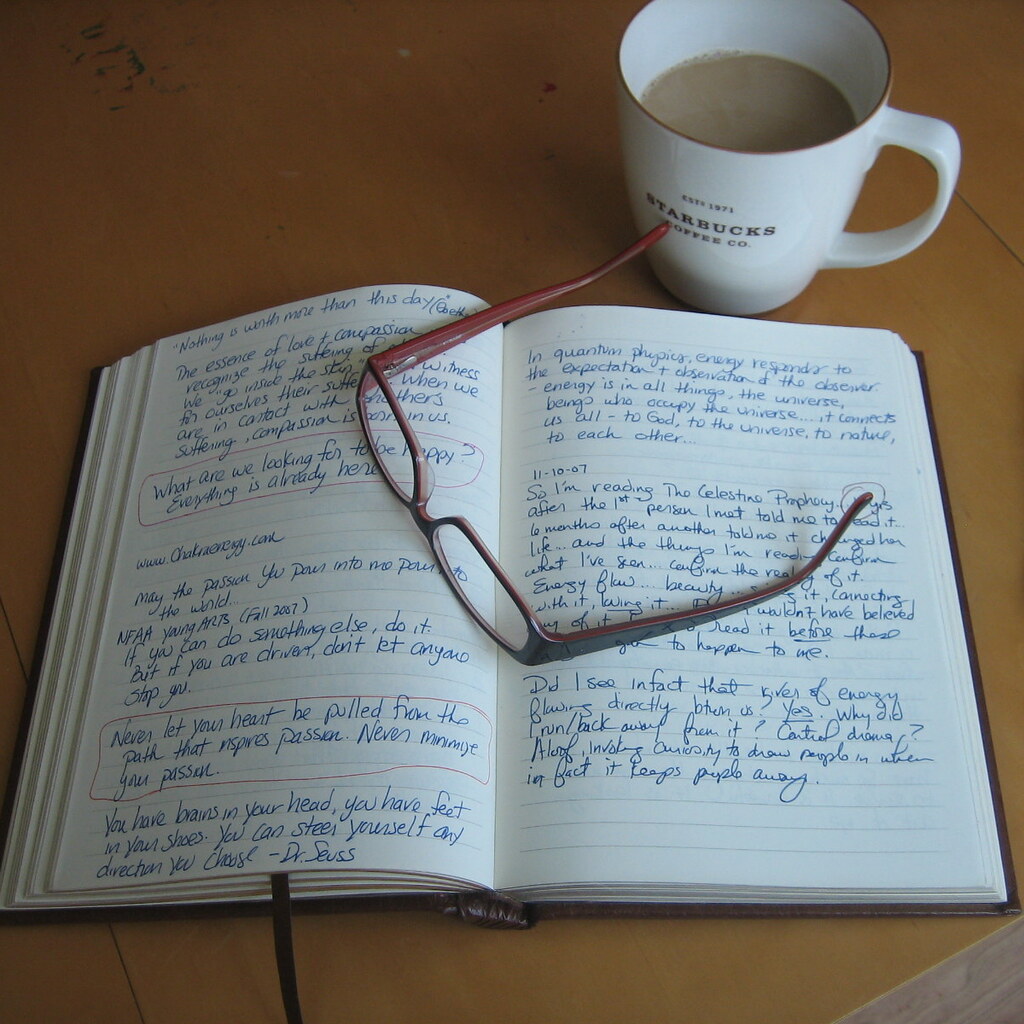 ESTD 1971
STARBUCKS
COFFEE CO.
"Nothing is worth more than this day" (Goethe
The essence of love + compassion
recognize the suffering of
we "go inside the skin" witness
for ourselves their suffe when we
are in contact with another's
suffering, compassion is born in us.
What are we looking for to be happy?
Everything is already here
www.Chakraenergy.com
may the passion you pour into me pour to
the world...
NFAA young ARTS (Fall 2007)
If you can do something else, do it.
But if you are driven, don't let anyone
stop you.
Never let your heart be pulled from the
path that inspires passion. Never minimize
your passion.
You have brains in your head, you have feet
in your shoes. You can steer yourself any
direction you choose - Dr. Seuss
In quantum physics, energy responds to
the expectation + observation of the observer
- energy is in all things, the universe,
beings who occupy the universe... it connects
us all - to God, to the universe, to nature,
to each other...
11-10-07
So I'm reading The Celestine Prophecy, yrs
after the 1st person I met told me to read it...
6 months after another told me it changed her
life... and the things I'm read confirm
what I've seen... confirm the rea of it.
Energy flow... beauty... it, connecting
with it, loving it... wouldn't have believed
any of it read it before these
to happen to me.
Did I see in fact that river of energy
flowing directly btwn us? Yes. Why did
I run/back away from it? Control drama,?
Aloof, invoking curiosity to draw people in when
in fact it keeps people away.